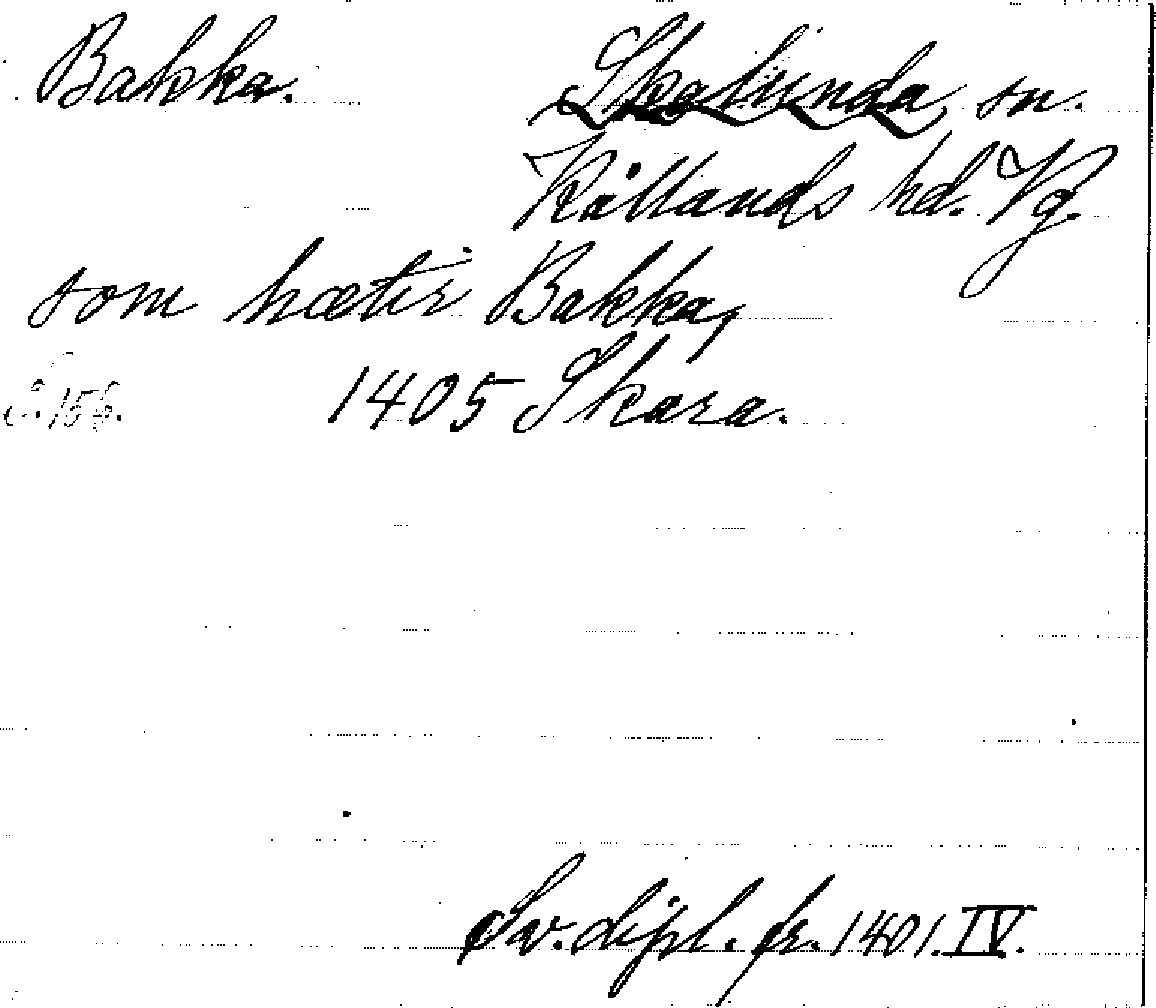 Bakka. Skalunda sn.
Kållands hd. Vg.
som hætir Bakka,
S. 156. 1405 Skara.
Sv. dipl. fr. 1401. IV.